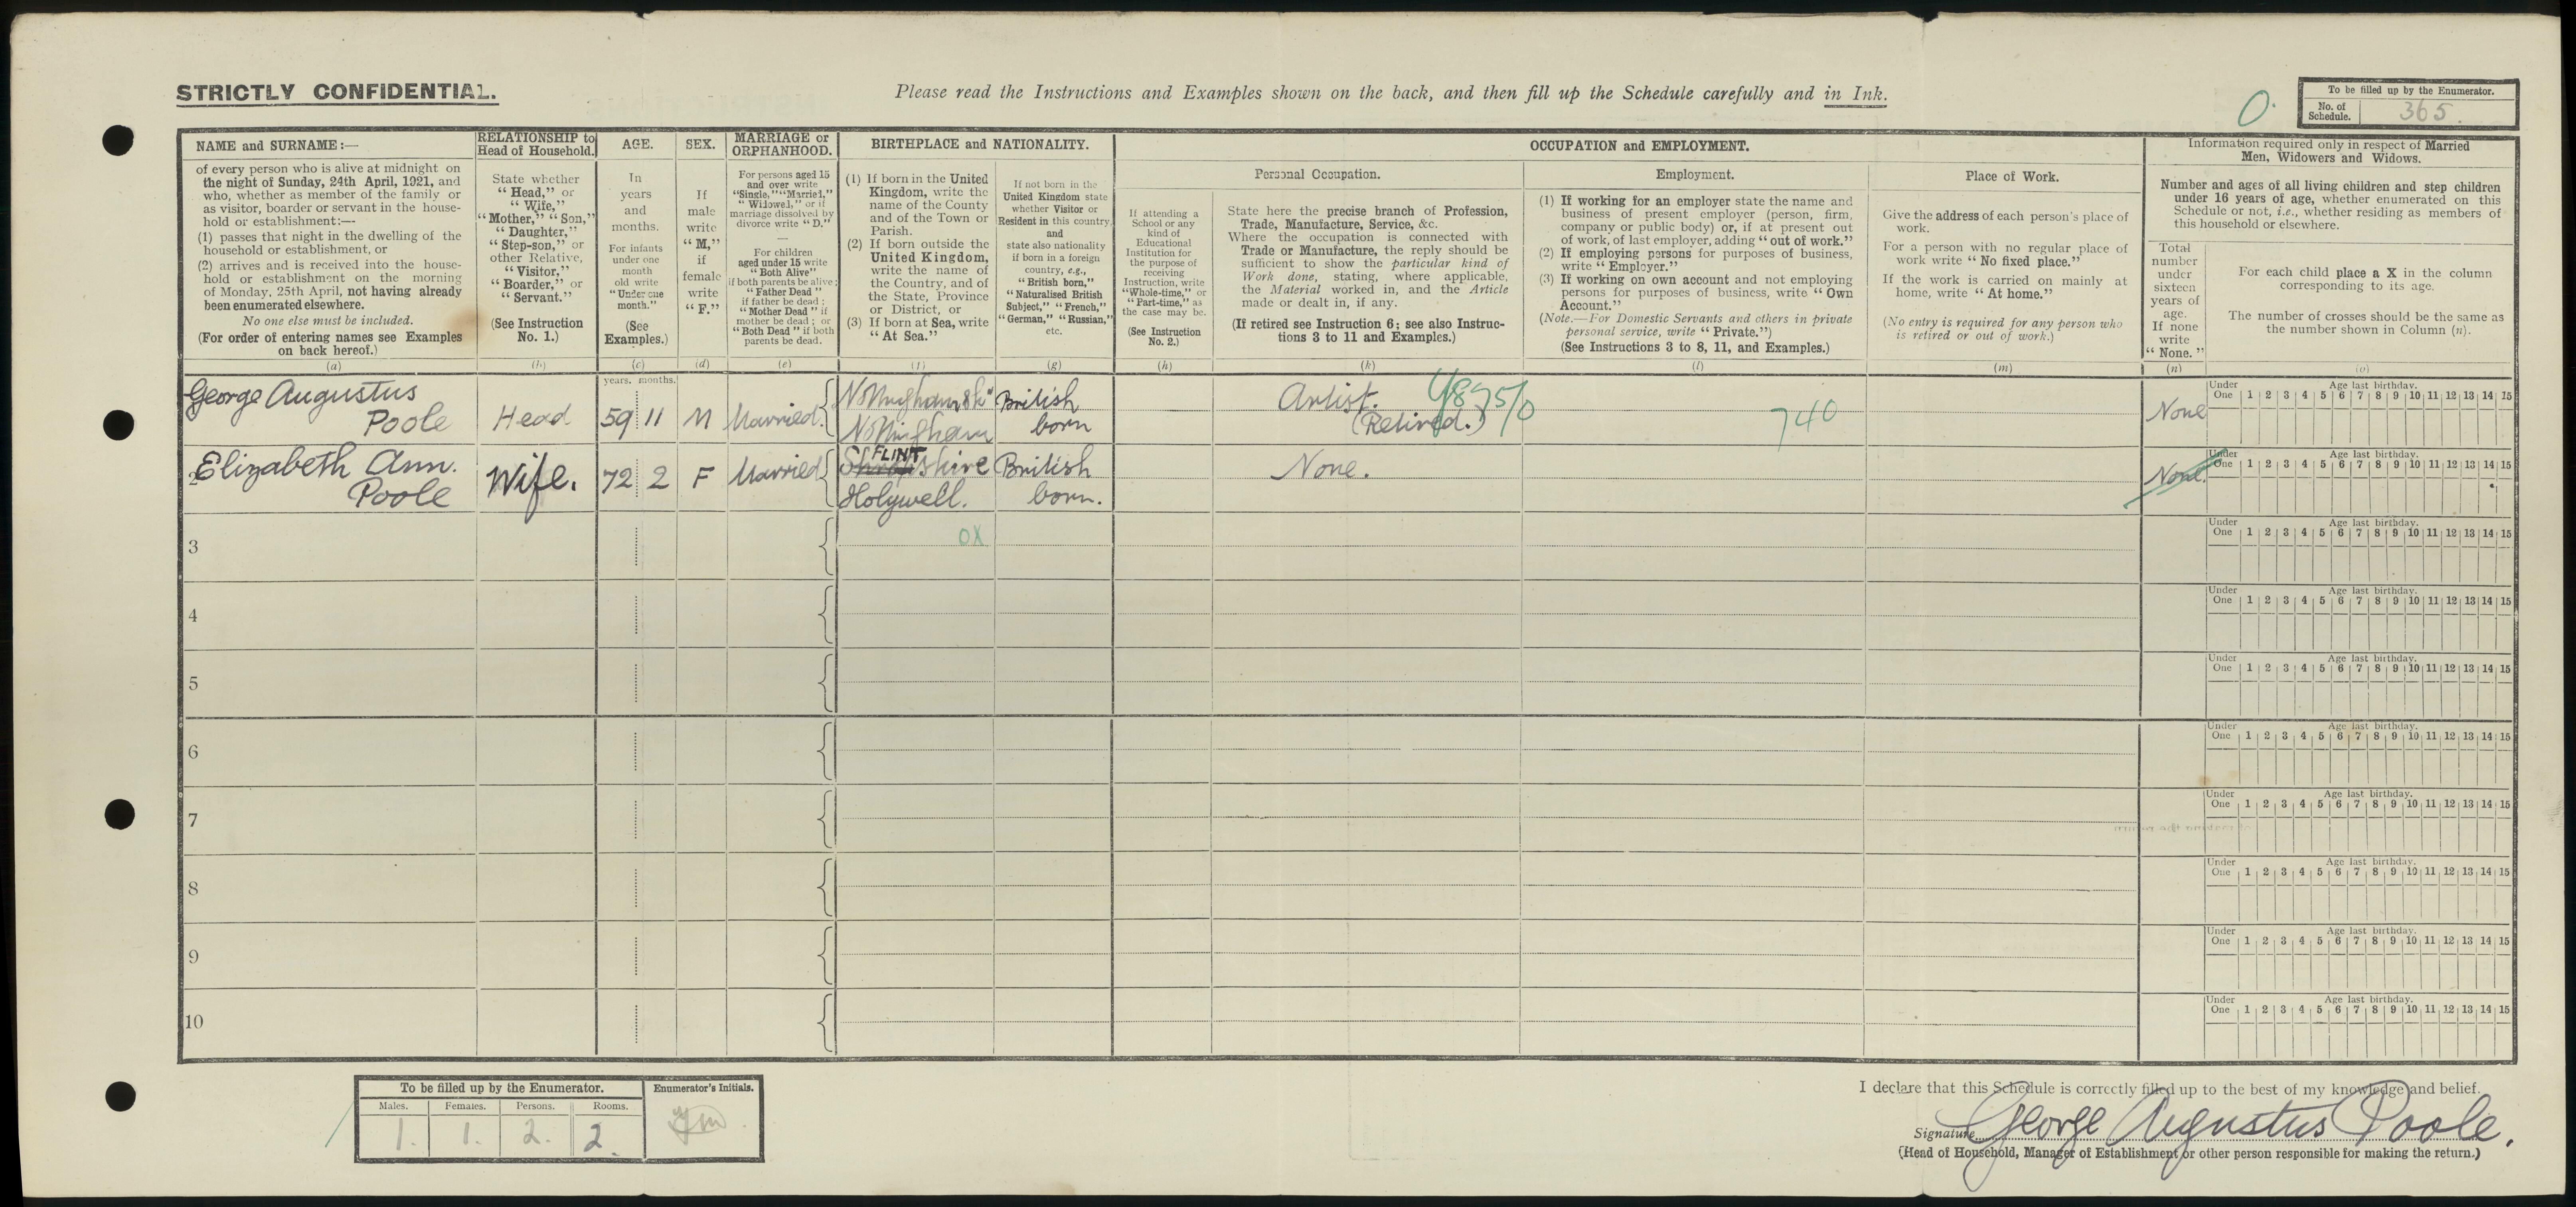 STRICTLY CONFIDENTIAL.
Please read the Instructions and Examples shown on the back, and then fill up the Schedule carefully and in Ink.
0.
To be filled up by the Enumerator.
No. of Schedule. 365.
NAME and SURNAME:—
of every person who is alive at midnight on
the night of Sunday, 24th April, 1921, and
who, whether as member of the family or
as visitor, boarder or servant in the house-
hold or establishment:—
(1) passes that night in the dwelling of the
household or establishment, or
(2) arrives and is received into the house-
hold or establishment on the morning
of Monday, 25th April, not having already
been enumerated elsewhere.
No one else must be included.
(For order of entering names see Examples
on back hereof.)
(a)
RELATIONSHIP to
Head of Household.
State whether
"Head," or
"Wife,"
"Mother," "Son,"
"Daughter,"
"Step-son," or
other Relative,
"Visitor,"
"Boarder," or
"Servant."
(See Instruction
No. 1.)
(b)
AGE.
In
years
and
months.
For infants
under one
month
old write
"Under one
month."
(See
Examples.)
(c)
SEX.
If
male
write
"M,"
if
female
write
"F."
(d)
MARRIAGE or
ORPHANHOOD.
For persons aged 15
and over write
"Single," "Married,"
"Widowed," or if
marriage dissolved by
divorce write "D."
—
For children
aged under 15 write
"Both Alive"
if both parents be alive;
"Father Dead"
if father be dead;
"Mother Dead" if
mother be dead; or
"Both Dead" if both
parents be dead.
(e)
BIRTHPLACE and NATIONALITY.
(1) If born in the United
Kingdom, write the
name of the County
and of the Town or
Parish.
(2) If born outside the
United Kingdom,
write the name of
the Country, and of
the State, Province
or District, or
(3) If born at Sea, write
"At Sea."
(f)
If not born in the
United Kingdom state
whether Visitor or
Resident in this country,
and
state also nationality
if born in a foreign
country, e.g.,
"British born,"
"Naturalised British
Subject," "French,"
"German," "Russian,"
etc.
(g)
OCCUPATION and EMPLOYMENT.
If attending a
School or any
kind of
Educational
Institution for
the purpose of
receiving
Instruction, write
"Whole-time," or
"Part-time," as
the case may be.
(See Instruction
No. 2.)
(h)
Personal Occupation.
State here the precise branch of Profession,
Trade, Manufacture, Service, &c.
Where the occupation is connected with
Trade or Manufacture, the reply should be
sufficient to show the particular kind of
Work done, stating, where applicable,
the Material worked in, and the Article
made or dealt in, if any.
(If retired see Instruction 6; see also Instruc-
tions 3 to 11 and Examples.)
(k)
Employment.
(1) If working for an employer state the name and
business of present employer (person, firm,
company or public body) or, if at present out
of work, of last employer, adding "out of work."
(2) If employing persons for purposes of business,
write "Employer."
(3) If working on own account and not employing
persons for purposes of business, write "Own
Account."
(Note.—For Domestic Servants and others in private
personal service, write "Private.")
(See Instructions 3 to 8, 11, and Examples.)
(l)
Place of Work.
Give the address of each person's place of
work.
For a person with no regular place of
work write "No fixed place."
If the work is carried on mainly at
home, write "At home."
(No entry is required for any person who
is retired or out of work.)
(m)
Information required only in respect of Married
Men, Widowers and Widows.
Number and ages of all living children and step children
under 16 years of age, whether enumerated on this
Schedule or not, i.e., whether residing as members of
this household or elsewhere.
Total
number
under
sixteen
years of
age.
If none
write
"None."
(n)
For each child place a X in the column
corresponding to its age.
The number of crosses should be the same as
the number shown in Column (n).
(o)
years. months.
George Augustus
Poole Head 59 11 M Married
Nottinghamsh
Nottingham
British
born
Artist.
(Retired.)
4875/0
740
None
Under One Age last birthday. 1 2 3 4 5 6 7 8 9 10 11 12 13 14 15
2 Elizabeth Ann.
Poole Wife. 72 2 F Married
FLINT
Shropshire
Holywell.
British
born.
None.
None.
Under One Age last birthday. 1 2 3 4 5 6 7 8 9 10 11 12 13 14 15
3
OX
Under One Age last birthday. 1 2 3 4 5 6 7 8 9 10 11 12 13 14 15
4
Under One Age last birthday. 1 2 3 4 5 6 7 8 9 10 11 12 13 14 15
5
Under One Age last birthday. 1 2 3 4 5 6 7 8 9 10 11 12 13 14 15
6
Under One Age last birthday. 1 2 3 4 5 6 7 8 9 10 11 12 13 14 15
7
Under One Age last birthday. 1 2 3 4 5 6 7 8 9 10 11 12 13 14 15
8
Under One Age last birthday. 1 2 3 4 5 6 7 8 9 10 11 12 13 14 15
9
Under One Age last birthday. 1 2 3 4 5 6 7 8 9 10 11 12 13 14 15
10
Under One Age last birthday. 1 2 3 4 5 6 7 8 9 10 11 12 13 14 15
To be filled up by the Enumerator.
Males. Females. Persons. Rooms.
1. 1. 2. 2.
Enumerator's Initials.
I declare that this Schedule is correctly filled up to the best of my knowledge and belief.
Signature George Augustus Poole.
(Head of Household, Manager of Establishment or other person responsible for making the return.)